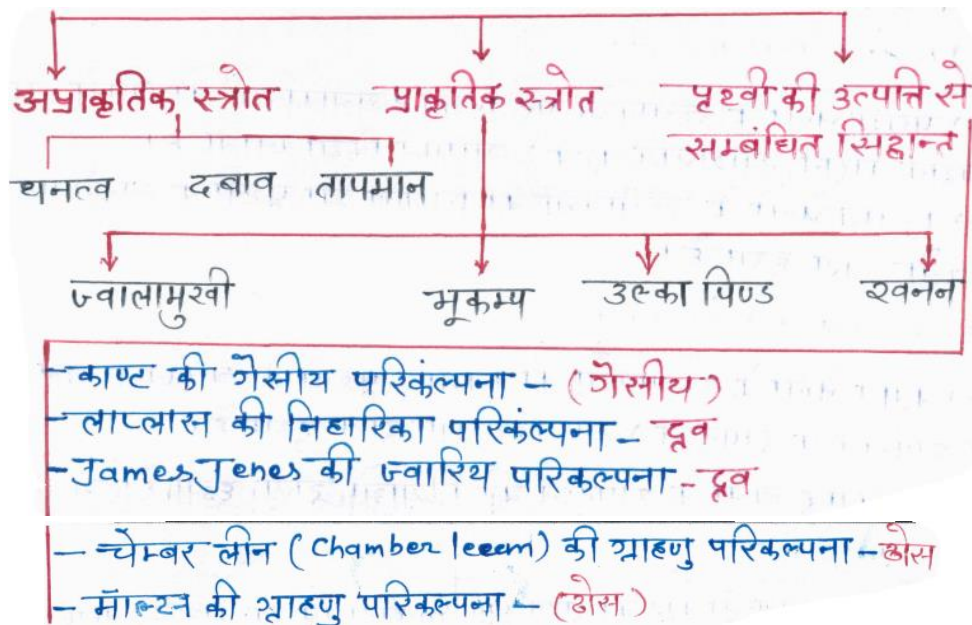 अप्राकृतिक स्त्रोत प्राकृतिक स्त्रोत पृथ्वी की उत्पत्ति से
सम्बंधित सिद्दान्त
धनत्व दबाव तापमान
ज्वालामुखी भूकम्प उल्का पिण्ड खनन
- काण्ट की गैसीय परिकंल्पना - (गैसीय)
- लाप्लास की निहारिका परिकंल्पना - द्रव
- James Jenes की ज्वारिय परिकल्पना - द्रव
- चेम्बर लीन (Chamber leeem) की ग्राहणु परिकल्पना - ठोस
- मॉल्टन की ग्राहणु परिकल्पना - (ठोस)